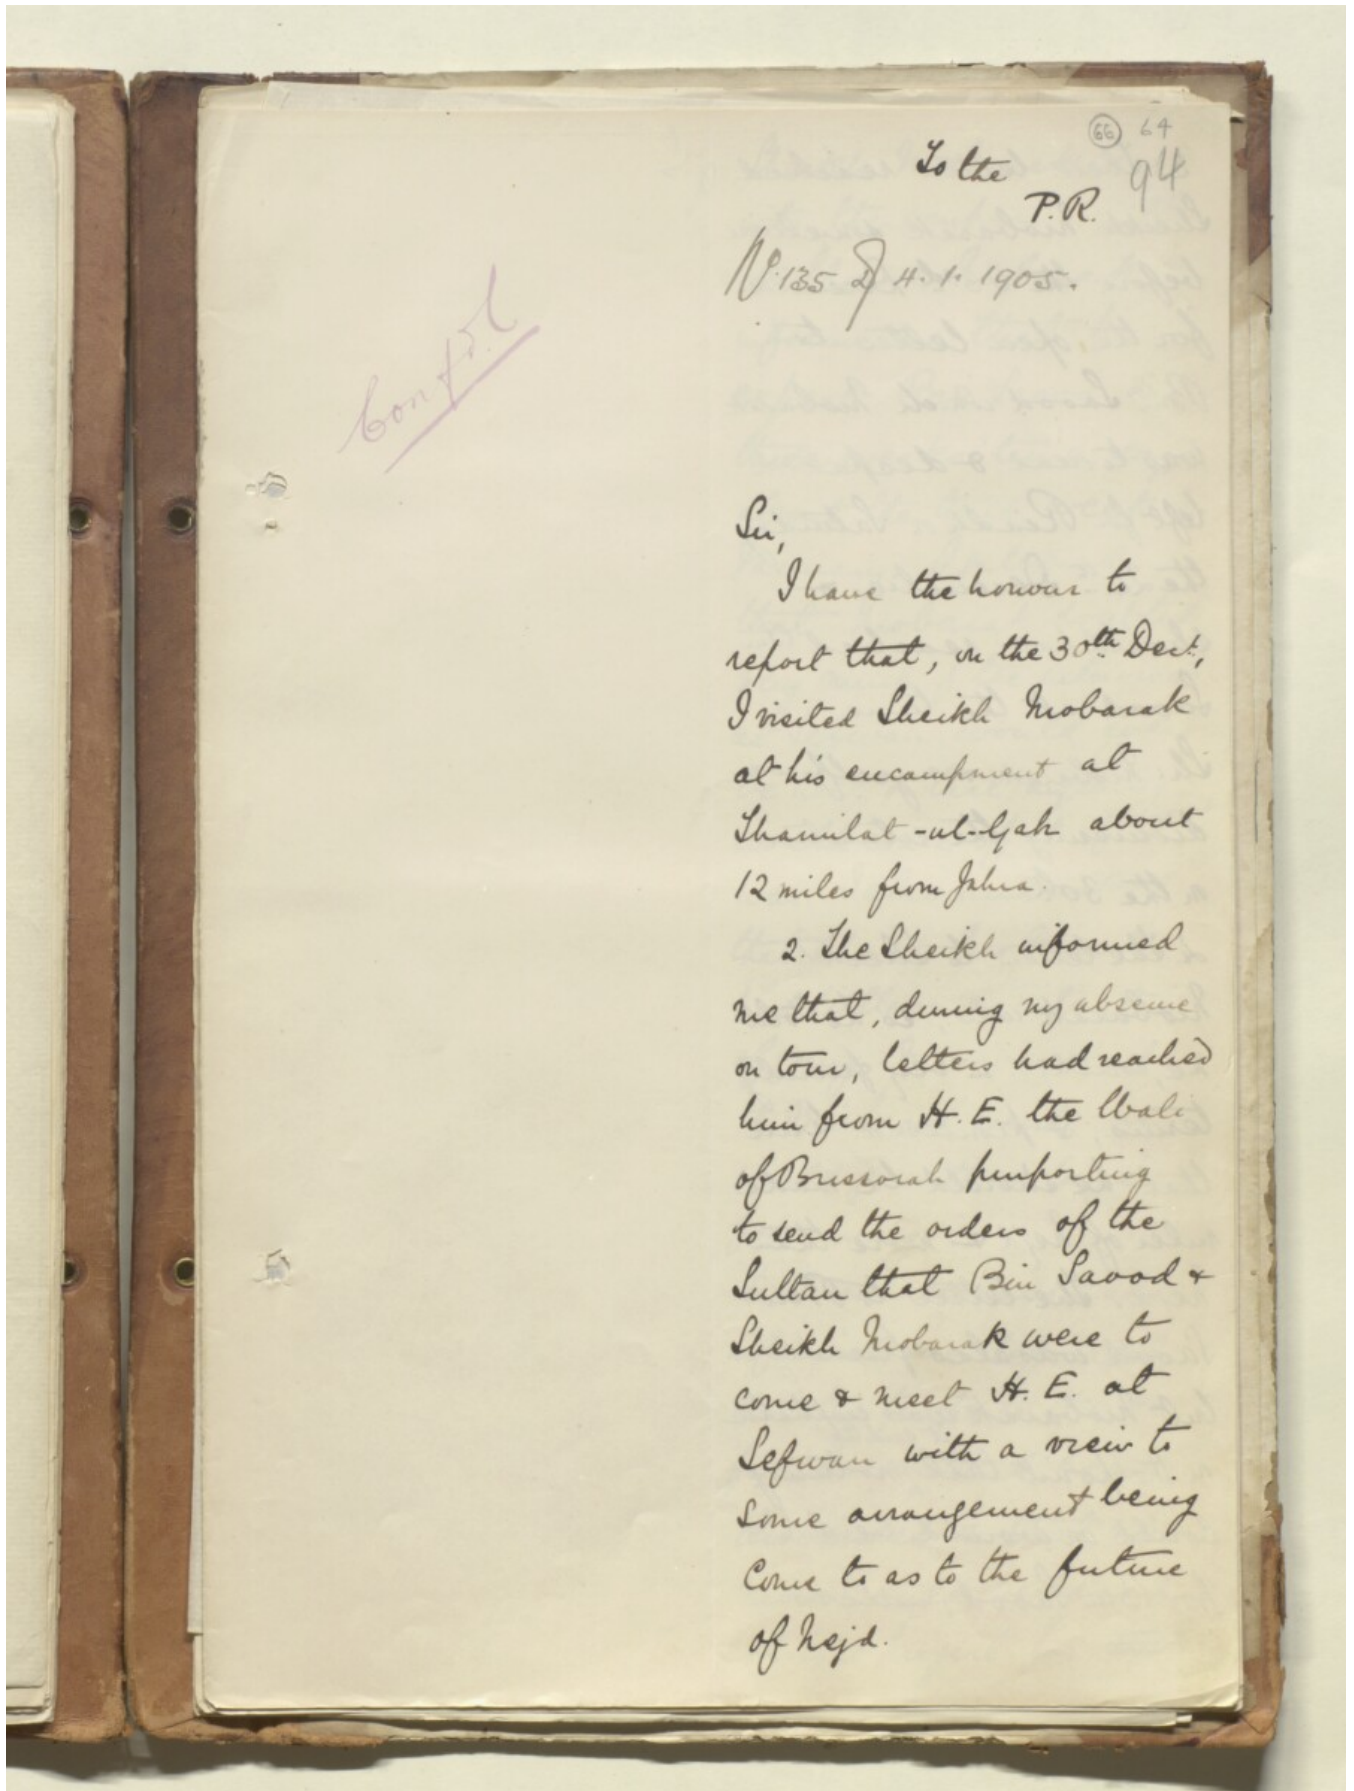 66 64
94
To the
P.R.
No. 135 D/ 4. 1. 1905.
Confdl
Sir,
I have the honour to
report that, on the 30th Decr.,
I visited Sheikh Mobarak
at his encampment at
Thamilat-ul-Gah about
12 miles from Jahra.
2. The Sheikh informed
me that, during my absence
on tour, letters had reached
him from H. E. the Wali
of Bussorah purporting
to send the orders of the
Sultan that Bin Saood &
Sheikh Mobarak were to
come & meet H. E. at
Sefwan with a view to
some arrangement being
come to as to the future
of Nejd.